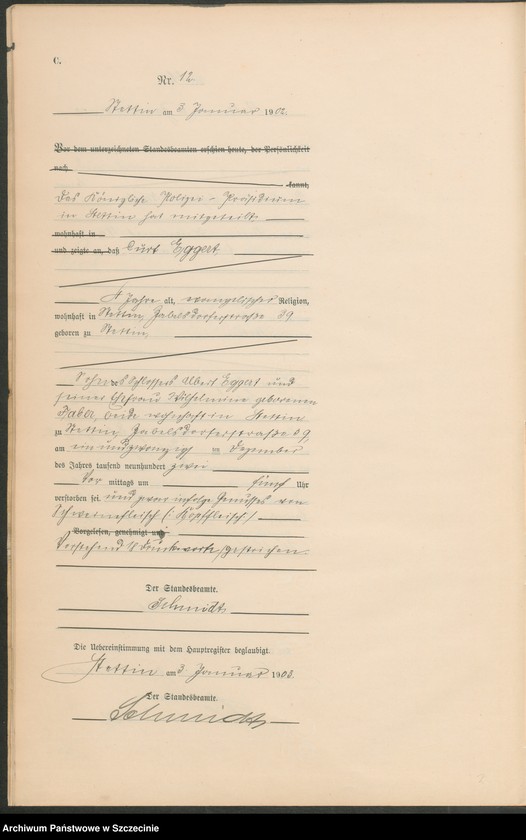 C.
Nr. 12
Stettin am 3 Januar 1903.
Vor dem unterzeichneten Standesbeamten erschien heute, der Persönlichkeit
nach
kannt,
Das Königliche Polizei-Präsidium
in Stettin hat mitgeteilt
wohnhaft in
und zeigte an, daß Curt Eggert,
4 Jahre alt, evangelischer Religion,
wohnhaft in Stettin, Zabelsdorferstraße 39
geboren zu Stettin,
Sohn des Schlossers Albert Eggert und
seiner Ehefrau Wilhelmine geborenen
Faber, beide wohnhaft in Stettin
zu Stettin, Zabelsdorferstraße 39,
am einundzwanzigsten Dezember
des Jahres tausend neunhundert zwei
Vor mittags um fünf Uhr
verstorben sei, und zwar infolge Genusses von
Schweinefleisch (: Kopffleisch :)
Vorgelesen, genehmigt und
Vorstehend Druckworte gestrichen.
Der Standesbeamte.
Schmidt
Die Uebereinstimmung mit dem Hauptregister beglaubigt.
Stettin am 3 Januar 1903.
Der Standesbeamte.
Schmidt
Archiwum Państwowe w Szczecinie